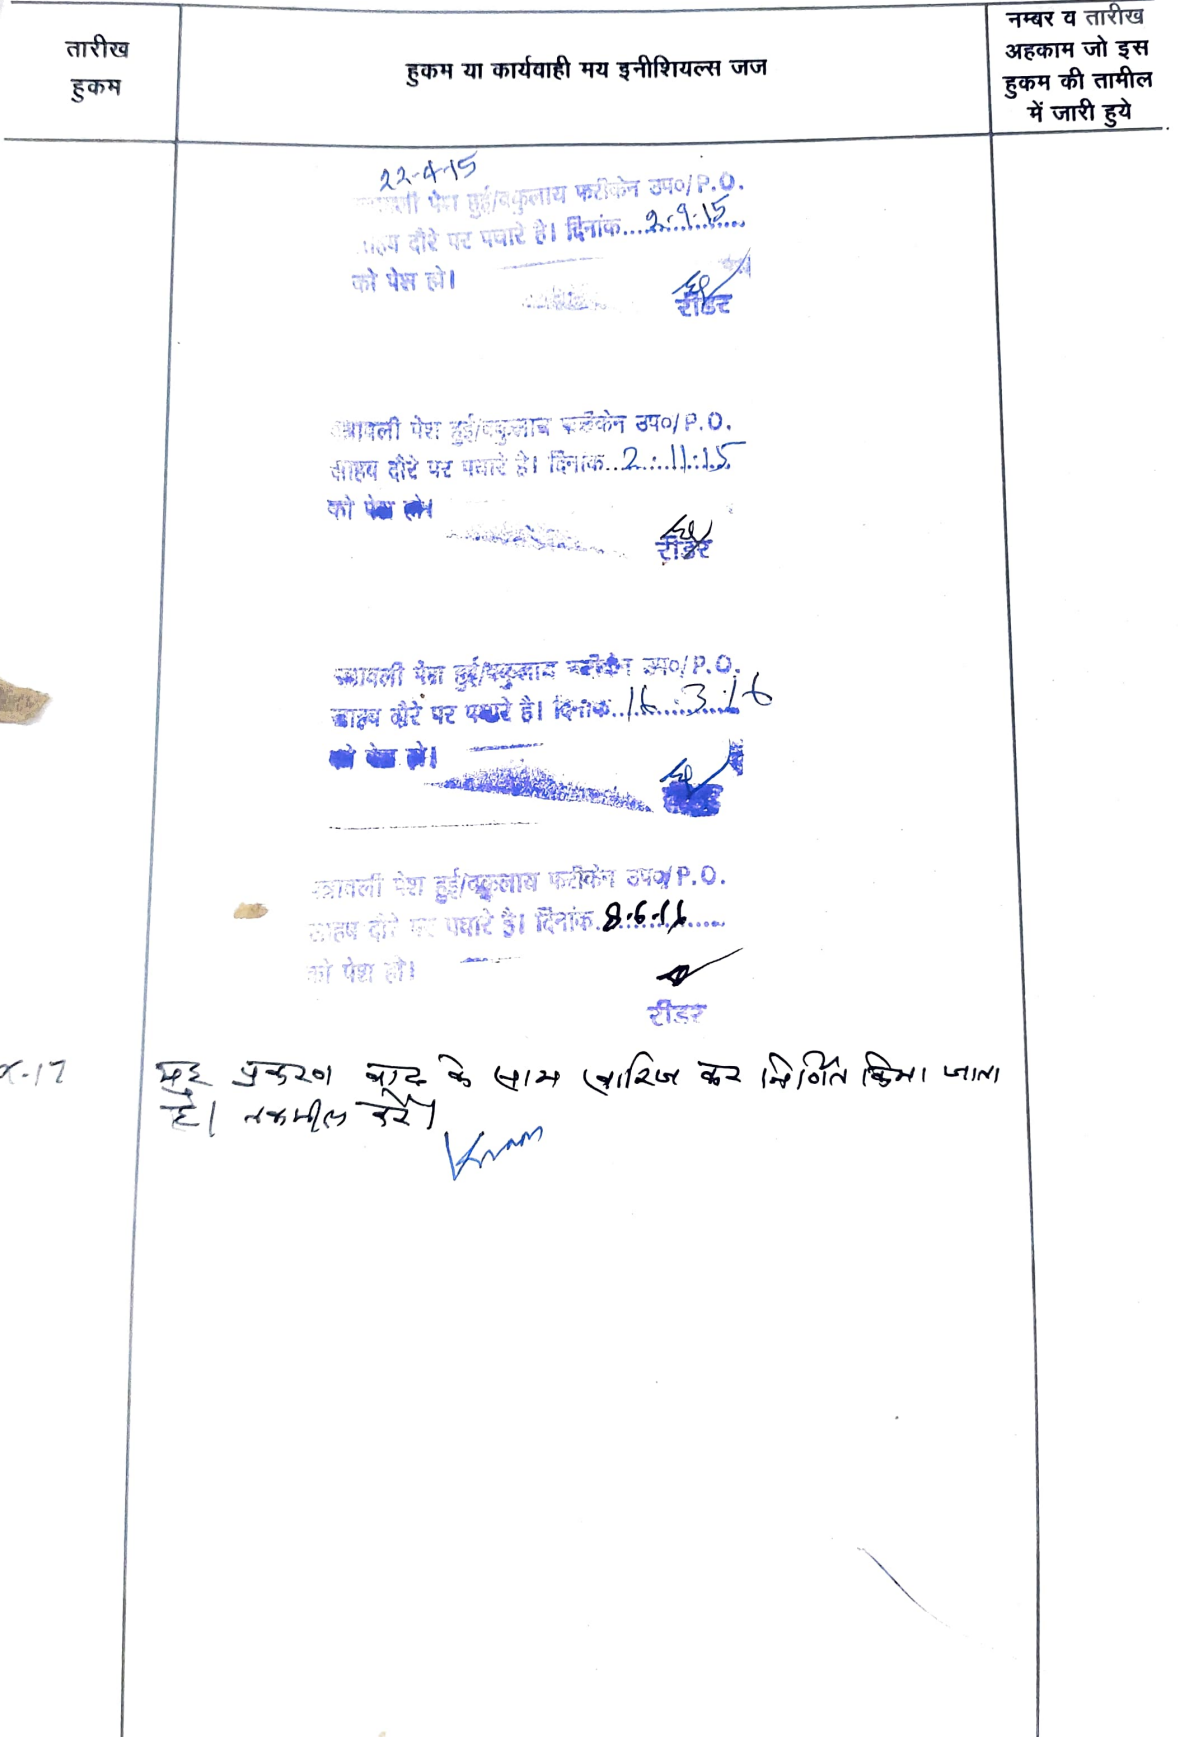 तारीख
हुकम
हुकम या कार्यवाही मय इनीशियल्स जज
नम्बर व तारीख
अहकाम जो इस
हुकम की तामील
में जारी हुये
22-4-15
पत्रावली पेश हुई/वकुलाय फरीकेन उप०/P.O.
साहब दौरे पर पधारे है। दिनांक...2.9.15...
को पेश हो।
रीडर
पत्रावली पेश हुई/वकुलाय फरीकेन उप०/P.O.
साहब दौरे पर पधारे है। दिनांक..2..11..15
को पेश हो।
रीडर
पत्रावली पेश हुई/वकुलाय फरीकेन उप०/P.O.
साहब दौरे पर पधारे है। दिनांक..16...3.16
को पेश हो।
रीडर
पत्रावली पेश हुई/वकुलाय फरीकेन उप०/P.O.
साहब दौरे पर पधारे है। दिनांक.8.6.16....
को पेश हो।
रीडर
-17 प्रकरण वाद के साथ खारिज कर निर्णित किया जाता
है। तकमील करें।